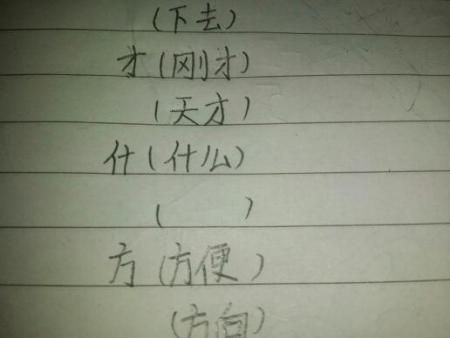 (下去)
才(刚才)
(天才)
什(什么)
(　　)
方(方便)
(方向)